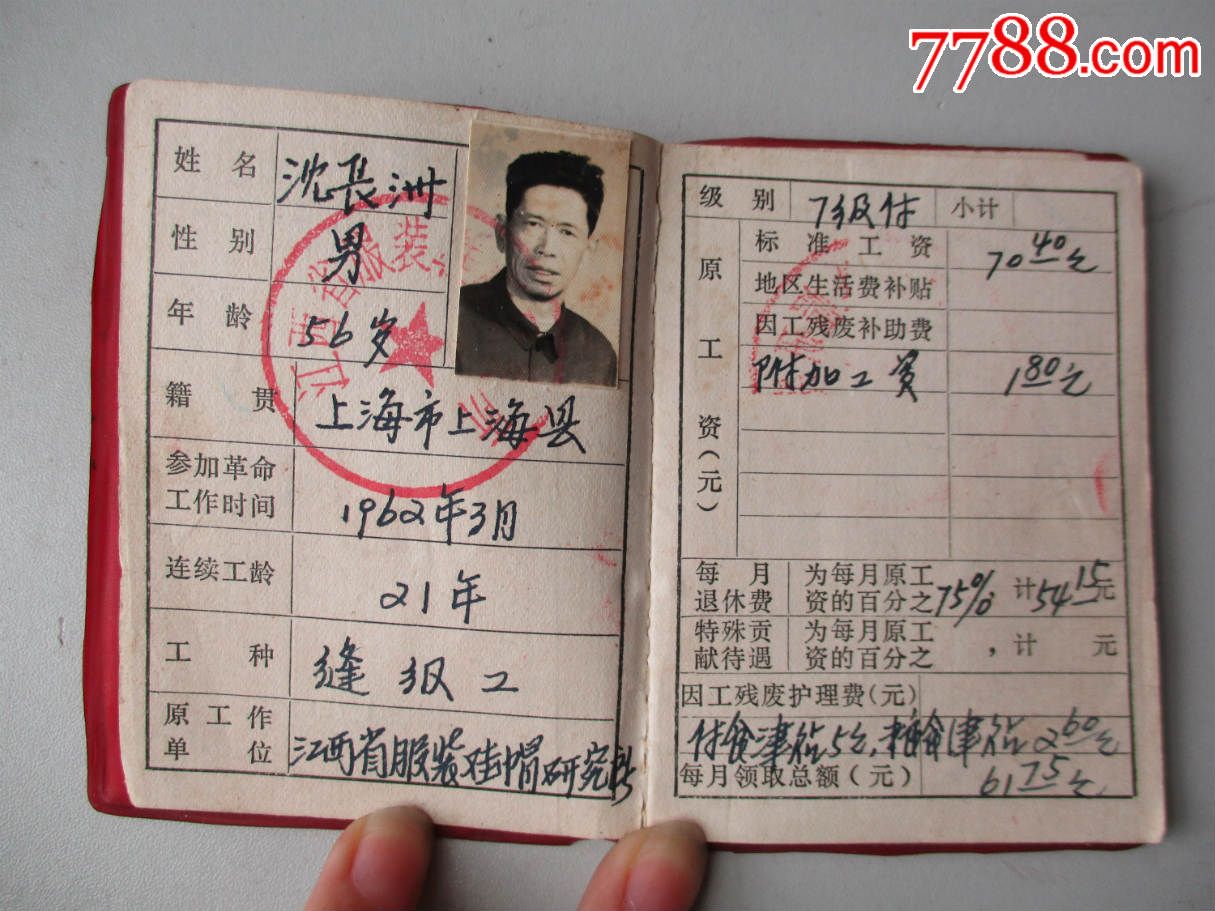 7788.com
姓名 沈長洲
性别 男
年龄 56岁
籍贯 上海市上海县
参加革命
工作时间 1962年3月
连续工龄 21年
工种 缝级工
原工作
单位 江西省服装鞋帽研究所
江西省服装
级别 7级付 小计
原工资(元)
标准工资 70.40元
地区生活费补贴
因工残废补助费
附加工资 1.80元
每月 为每月原工
退休费 资的百分之75% 计54.15元
特殊贡 为每月原工
献待遇 资的百分之 ,计 元
因工残废护理费(元)
付食津贴5元,粮食津贴2.60元
每月领取总额(元) 61.75元